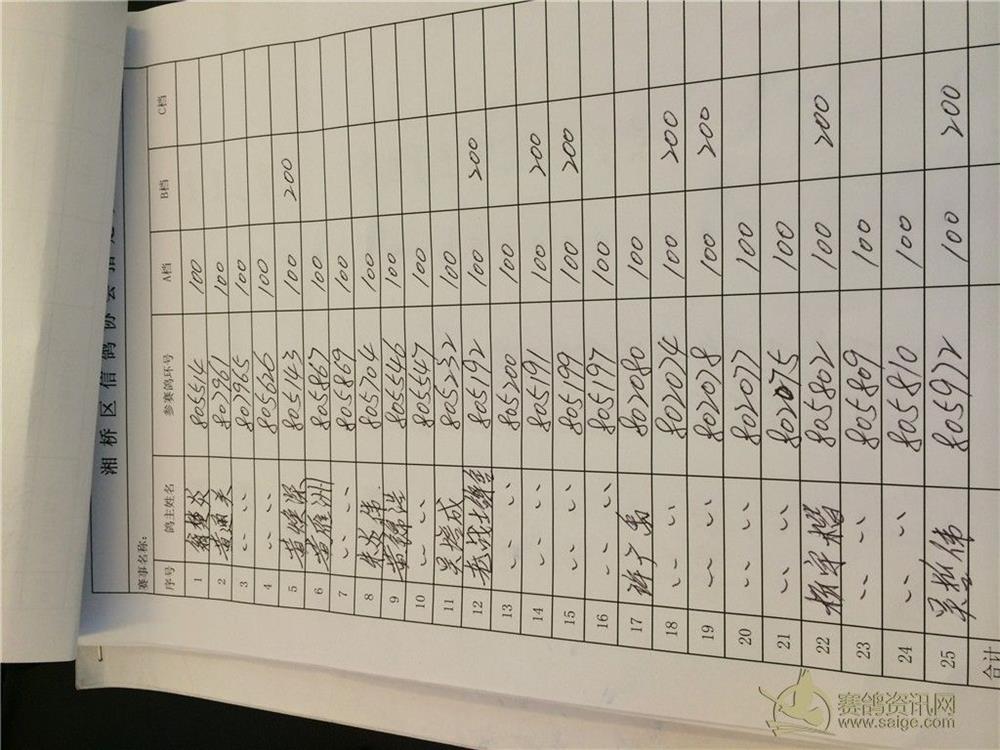 湘桥区信鸽协会指定
赛事名称：
序号 鸽主姓名 参赛鸽环号 A档 B档 C档
1 805514 100
2 黄通关 802961 100
3 〃 802965 100
4 〃 805626 100
5 黄 805143 100 200
6 黄雄洲 805867 100
7 〃 805869 100
8 朱炎伟 805704 100
9 黄锦浩 805546 100
10 〃 805547 100
11 吴 成 805232 100
12 805192 100 200
13 〃 805200 100
14 〃 805191 100 200
15 〃 805199 100 200
16 〃 805197 100
17 许 802080 100
18 〃 802074 100 200
19 〃 802078 100 200
20 〃 802077 100
21 〃 802075 100
22 805802 100 200
23 〃 805809 100
24 〃 805810 100
25 吴 伟 805972 100 200
合计
赛鸽资讯网
www.saige.com